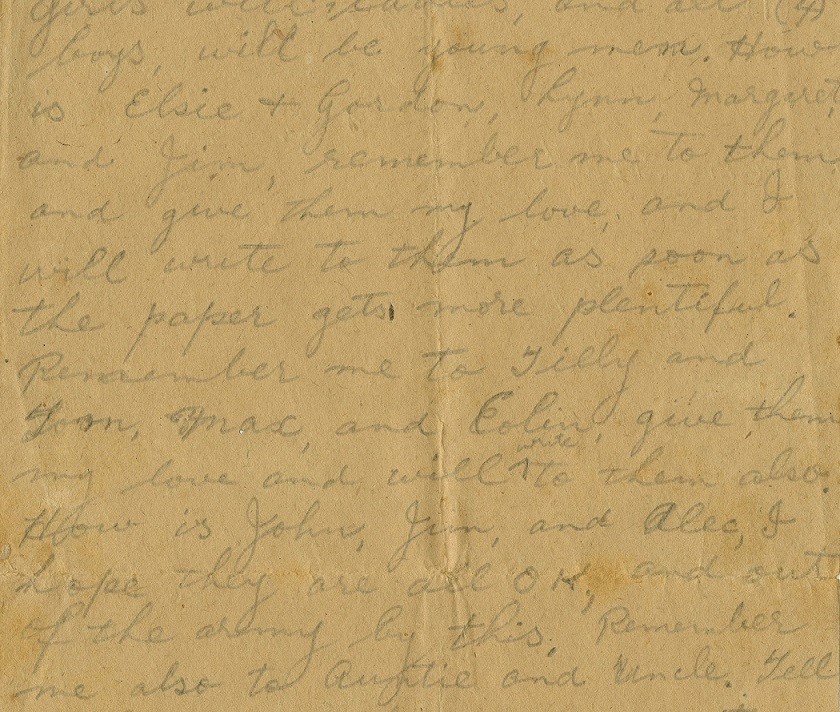 girls will ladies, and all (4)
boys, will be young men. How
is Elsie + Gordon, Lynn, Margiret,
and Jim, remember me to them,
and give them my love, and I
will write to them as soon as
the paper gets more plentiful.
Remember me to Tilly and
Tom, Max, and Colin, give them
my love and will write to them also.
How is John, Jim, and Alec, I
hope they are all OK, and out
of the army by this. Remember
me also to Auntie and Uncle. Tell